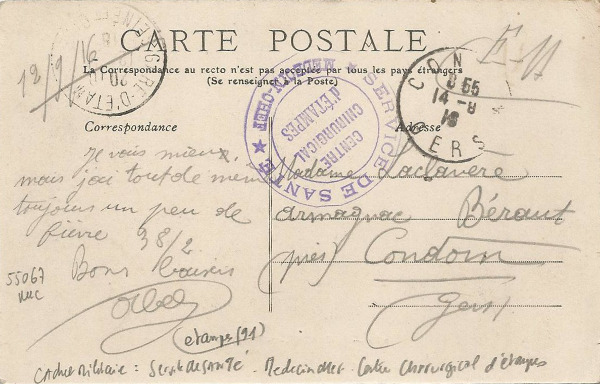 CARTE POSTALE
La Correspondance au recto n'est pas acceptée par tous les pays étrangers
(Se renseigner à la Poste)
Correspondance
Adresse
12/9/16
F-M
GARE-D'ETAMPES
CONDOM
8 55
14-8
16
GERS
★ SERVICE DE SANTÉ ★
MEDECIN-CHEF
CENTRE
CHIRURGICAL
D'ÉTAMPES
Je vais mieux,
mais j'ai tout de même
toujours un peu de
fièvre 38/2
Bons baisers
Abel
Madame Laclavere
Armagnac Béraut
(près) Condom
(Gers)
55067
etampes (91)
Cachet Militaire : Service de santé. Medecin chef. Centre Chirurgical d'étampes